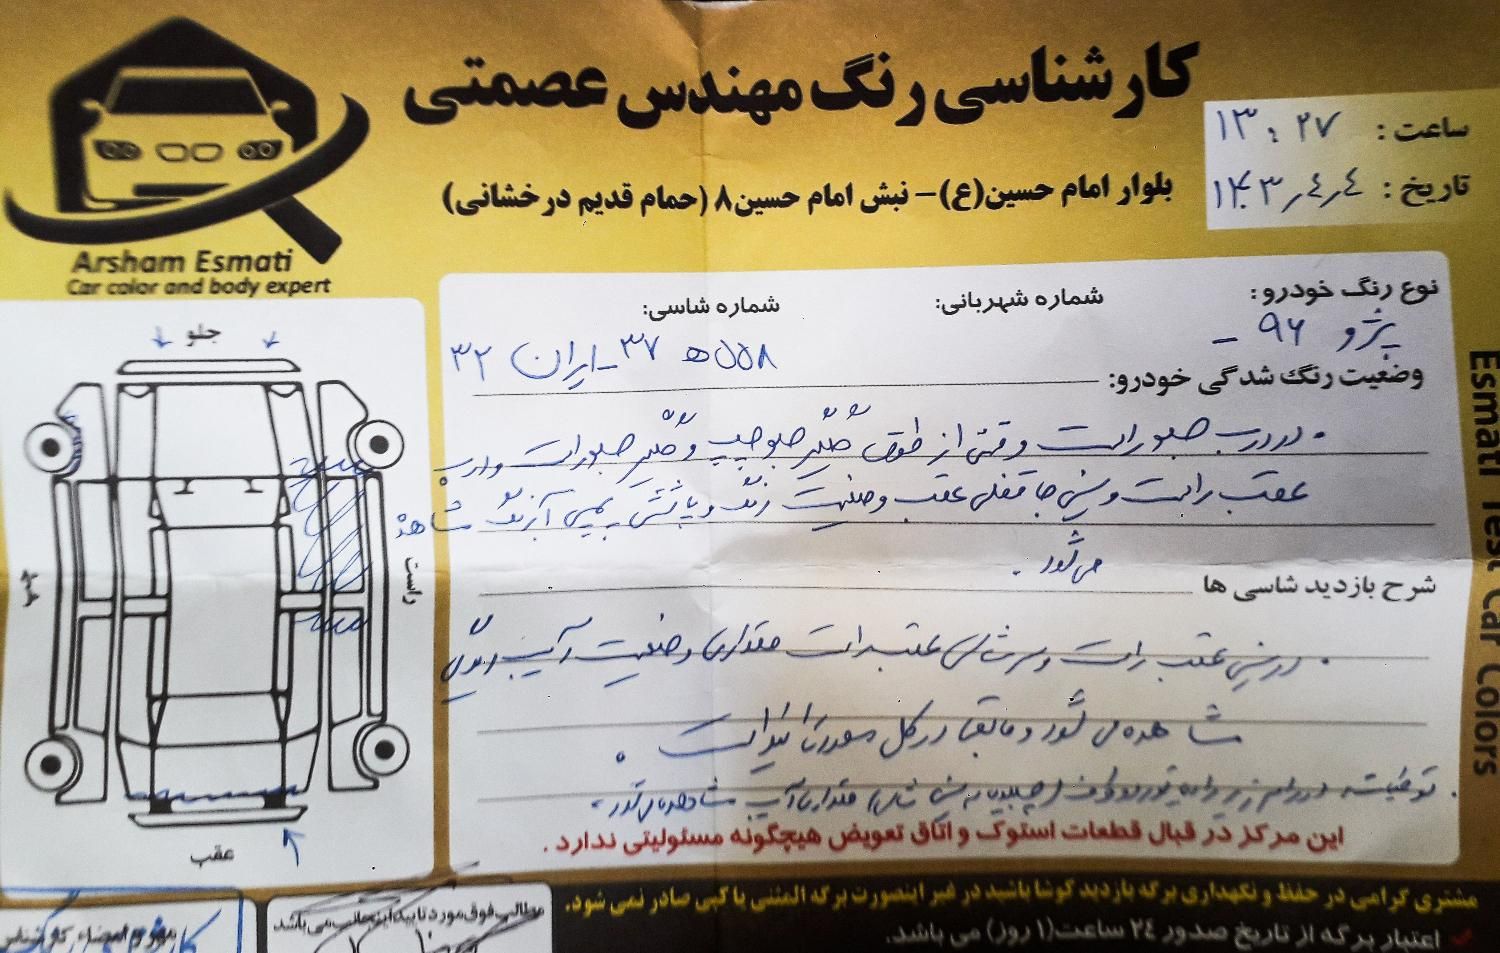 کارشناسی رنگ مهندس عصمتی
ساعت : ۱۳ : ۲۷
بلوار امام حسین(ع)– نبش امام حسین۸ (حمام قدیم درخشانی)
تاریخ : ۱۴۰۳/۴/۴
Arsham Esmati
Car color and body expert
نوع رنگ خودرو :
شماره شهربانی:
شماره شاسی:
پژو ۹۶ –
۳۷ – ایران ۳۲
وضعیت رنگ شدگی خودرو:
در درب جلو راست و قسمتی از گلگیر جلو چپ و گلگیر جلو راست و درب
عقب راست و سینی عقب وضعیت رنگ و پاشش به یمین آبرنگ مشاهده
می شود .
شرح بازدید شاسی ها
در سینی عقب راست و سر شاسی عقب راست مقداری وضعیت آسیب
مشاهده می شود و مابقی در کل است .
مقداری آسیب مشاهده می شود .
این مرکز در قبال قطعات استوک و اتاق تعویض هیچگونه مسئولیتی ندارد .
مشتری گرامی در حفظ و نگهداری برگه بازدید کوشا باشید در غیر اینصورت برگه المثنی یا کپی صادر نمی شود.
اعتبار برگه از تاریخ صدور ۲۴ ساعت(۱ روز) می باشد.
جلو
راست
چپ
عقب
مطالب فوق مورد تایید اینجانب می باشد
مهر و امضاء کارشناس
Esmati Test Car Colors